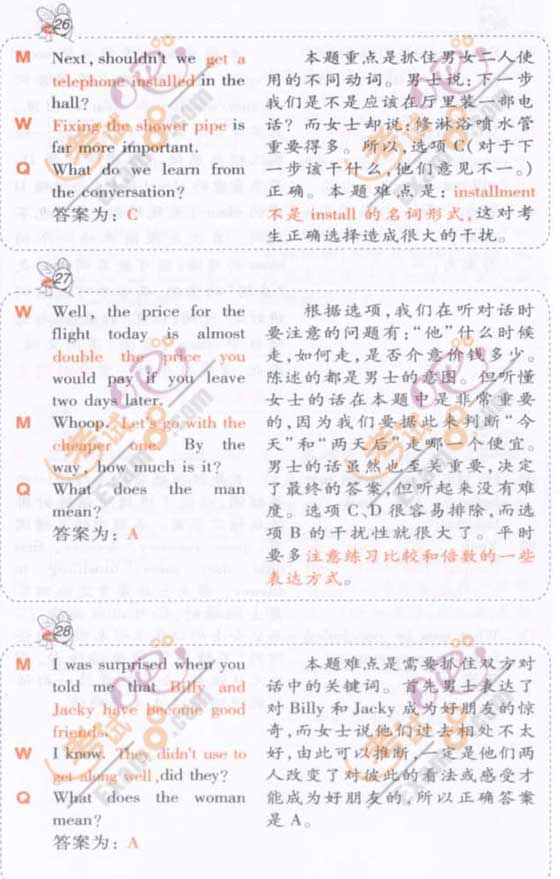 26
M Next, shouldn't we get a
telephone installed in the
hall?
W Fixing the shower pipe is
far more important.
Q What do we learn from
the conversation?
答案为：C
本题重点是抓住男女二人使
用的不同动词。男士说：下一步
我们是不是应该在厅里装一部电
话？而女士却说：修淋浴喷水管
重要得多。所以，选项C(对于下
一步该干什么，他们意见不一。)
正确。本题难点是：installment
不是 install 的名词形式，这对考
生正确选择造成很大的干扰。
27
W Well, the price for the
flight today is almost
double the price you
would pay if you leave
two days later.
M Whoop. Let's go with the
cheaper one. By the
way, how much is it?
Q What does the man
mean?
答案为：A
根据选项，我们在听对话时
要注意的问题有：“他”什么时候
走，如何走，是否介意价钱多少。
陈述的都是男士的意图。但听懂
女士的话在本题中是非常重要
的，因为我们要据此来判断“今
天”和“两天后”走哪一个便宜。
男士的话虽然也至关重要，决定
了最终的答案，但听起来没有难
度。选项C、D很容易排除，而选
项B的干扰性就很大了。平时
要多注意练习比较和倍数的一些
表达方式。
28
M I was surprised when you
told me that Billy and
Jacky have become good
friends.
W I know. They didn't use to
get along well, did they?
Q What does the woman
mean?
答案为：A
本题难点是需要抓住双方对
话中的关键词。首先男士表达了
对Billy和Jacky成为好朋友的惊
奇，而女士说他们过去相处不太
好，由此可以推断，一定是他们两
人改变了对彼此的看法或感受才
能成为好朋友的，所以正确答案
是A。